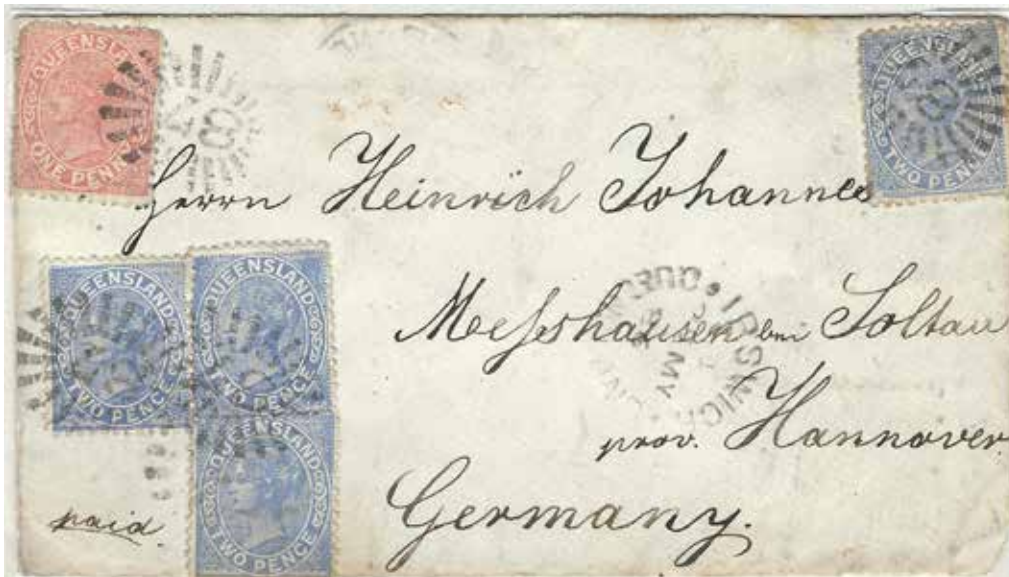 QUEENSLAND
ONE PENNY
QUEENSLAND
TWO PENCE
Herrn Heinrich Johannes
QUEENSLAND
TWO PENCE
QUEENSLAND
TWO PENCE
QUEENSLAND
TWO PENCE
IPSWICH
MY
Meßhausen bei Soltau
prov. Hannover
Germany.
paid.